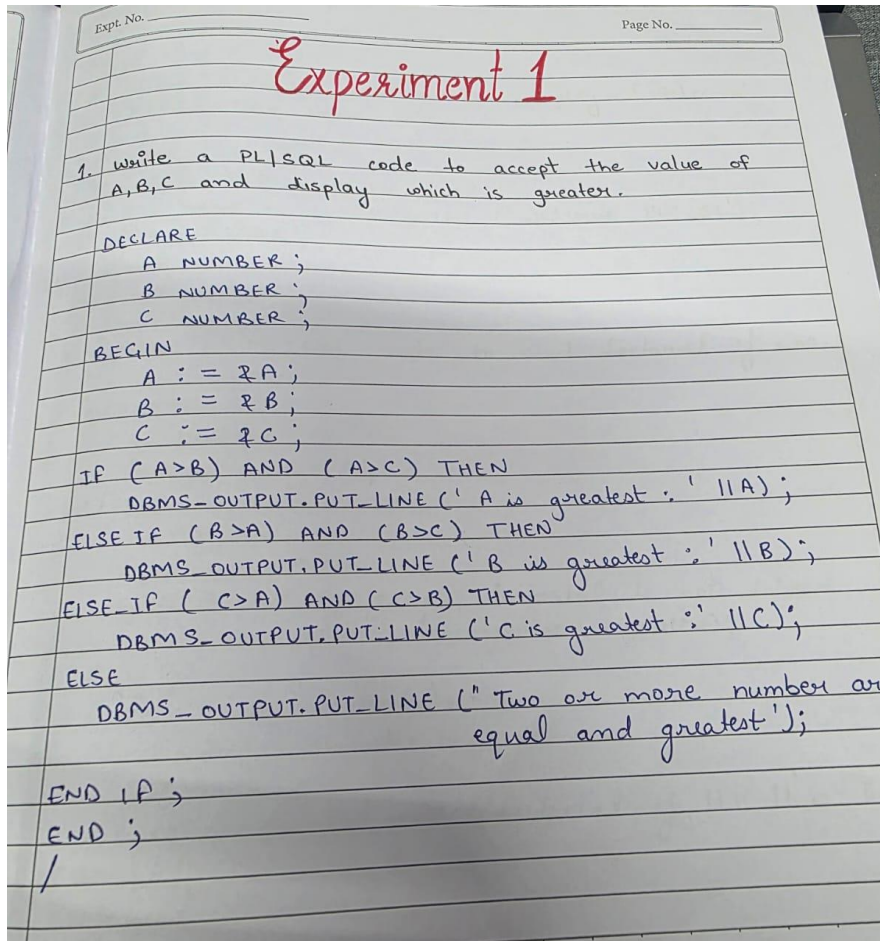 Expt. No.
Page No.
Experiment 1
1. Write a PL|SQL code to accept the value of
A, B, C and display which is greater.
DECLARE
A NUMBER ;
B NUMBER ;
C NUMBER ;
BEGIN
A := &A ;
B := &B ;
C := &C ;
IF (A>B) AND (A>C) THEN
DBMS_OUTPUT.PUT_LINE (' A is greatest : ' ||A) ;
ELSE IF (B>A) AND (B>C) THEN
DBMS_OUTPUT.PUT_LINE (' B is greatest :' ||B) ;
ELSE_IF ( C>A) AND ( C>B) THEN
DBMS_OUTPUT.PUT_LINE ('C is greatest :' ||C) ;
ELSE
DBMS_OUTPUT.PUT_LINE (" Two or more number ar
equal and greatest') ;
END IF ;
END ;
/